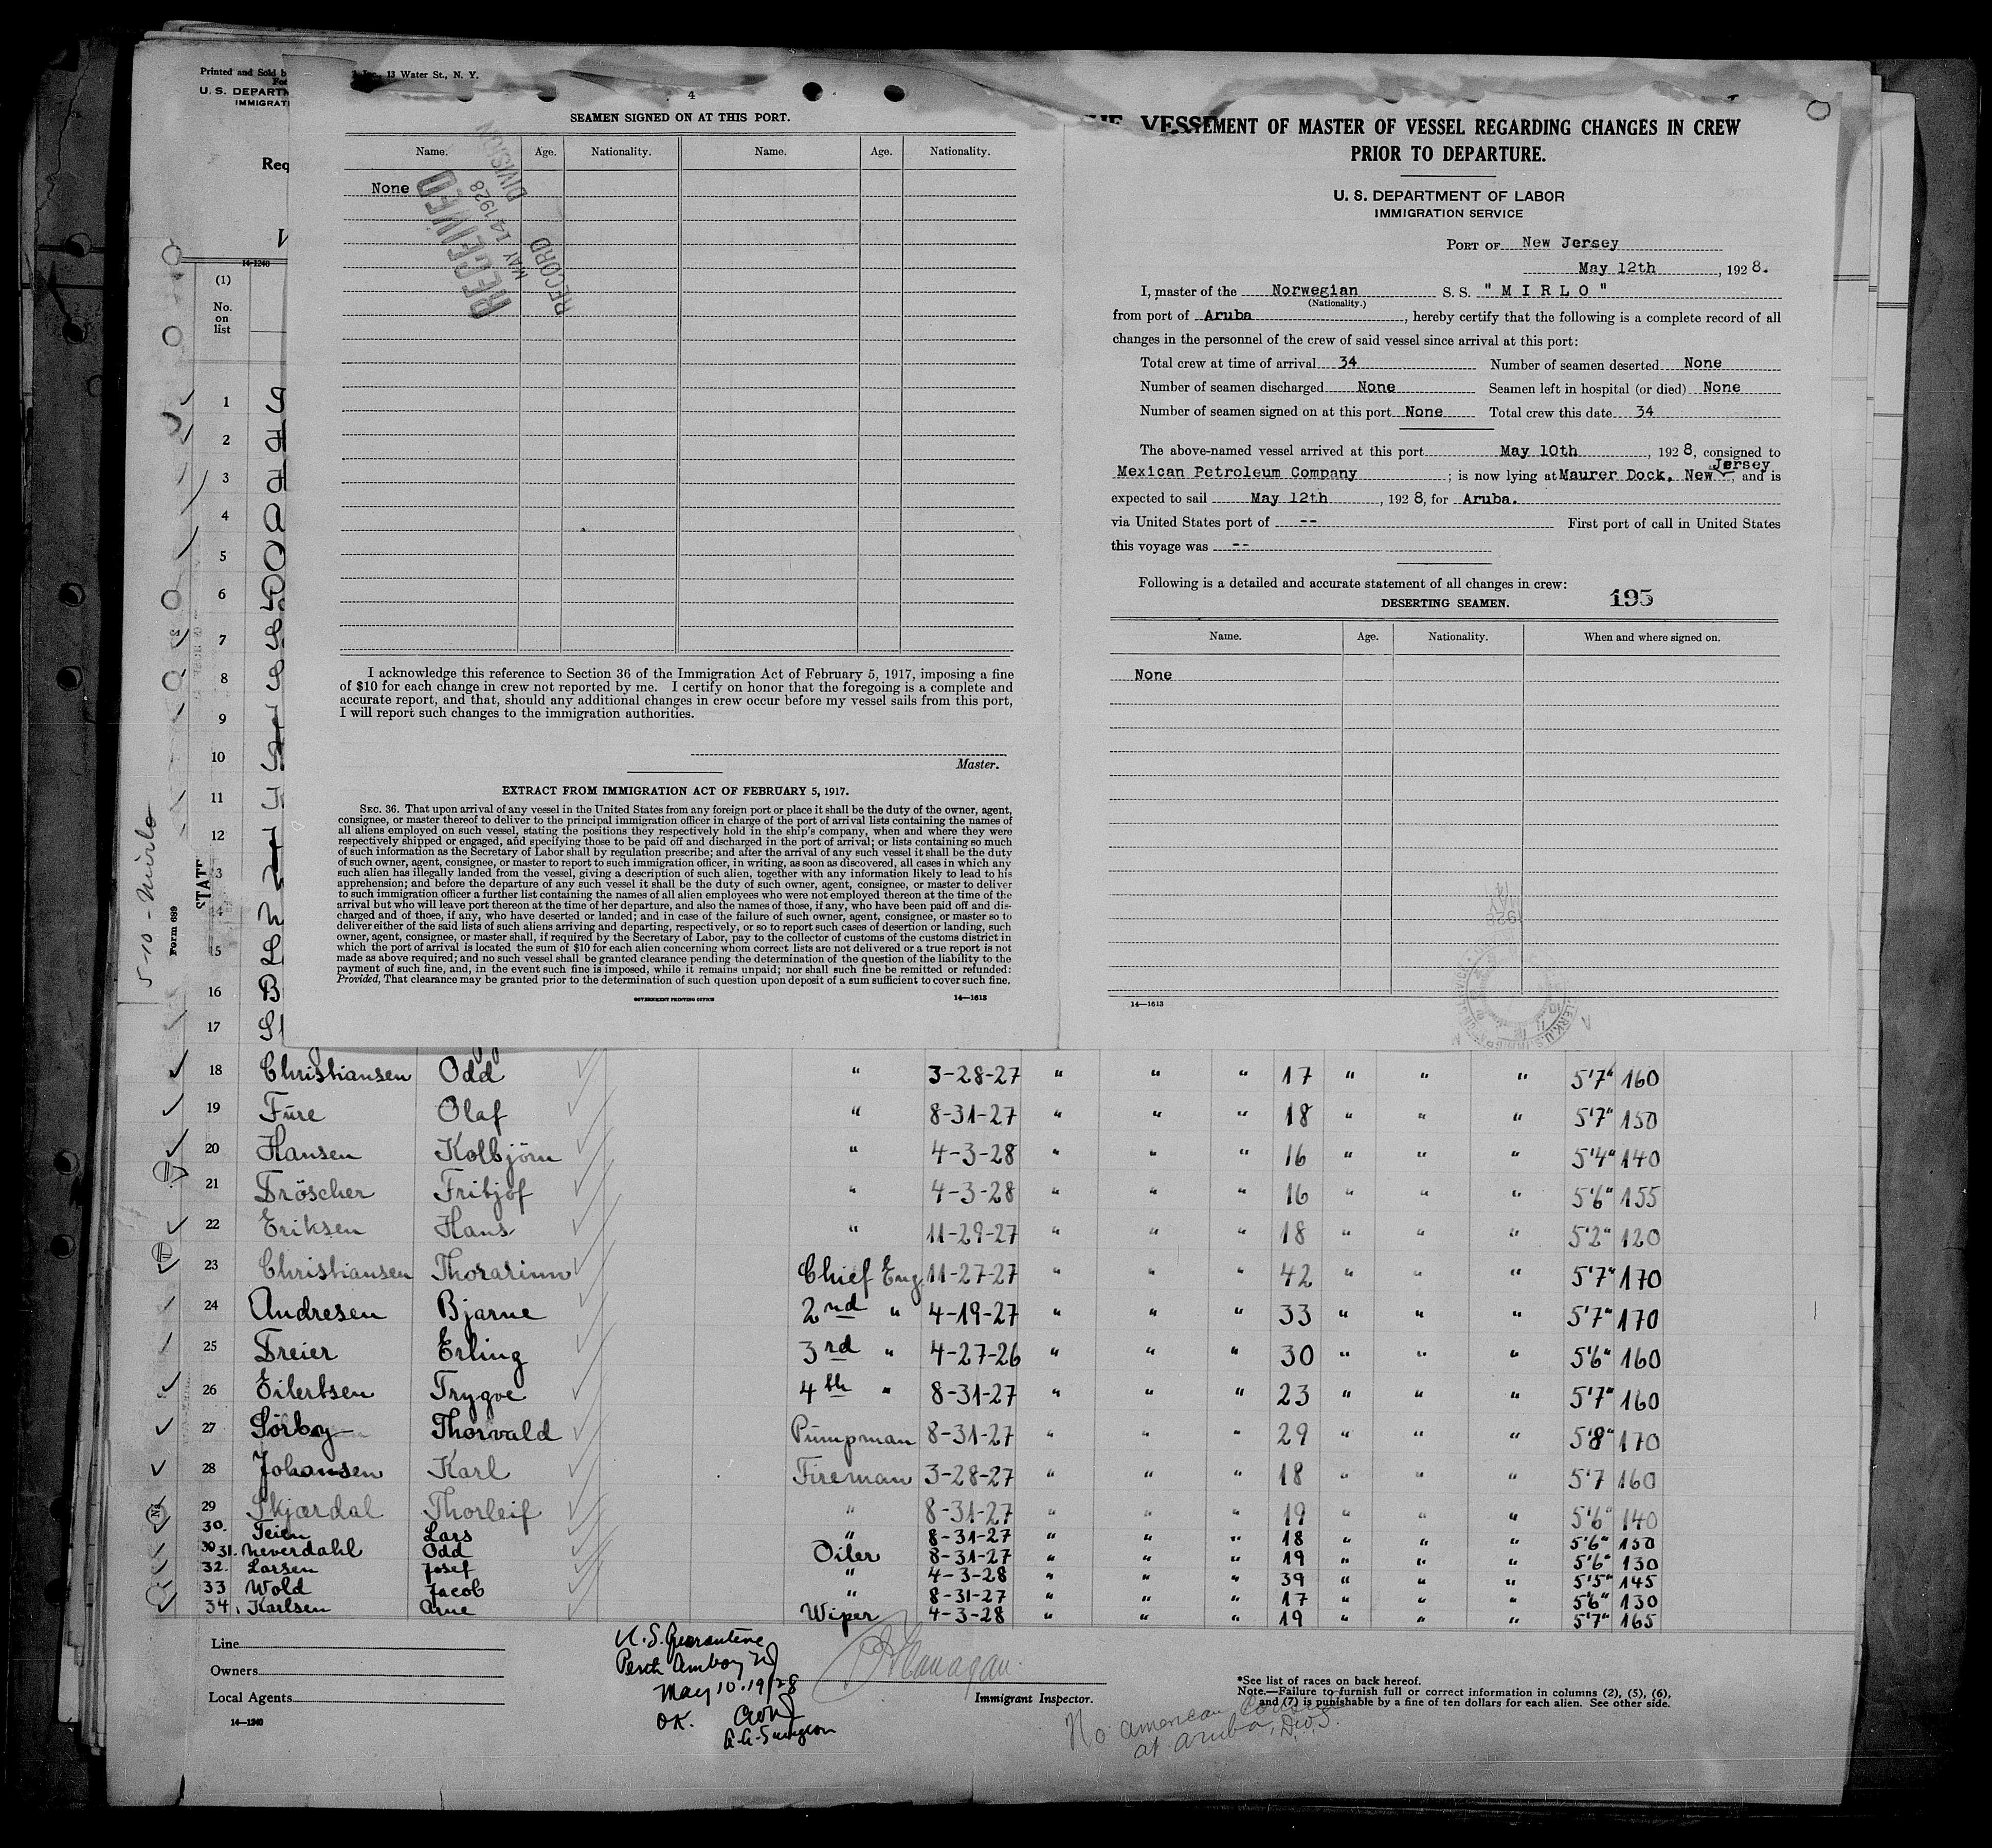 Printed and Sold b
U. S. DEPARTM
IMMIGRATI
Req
14-1240
(1)
No.
on
list
1
2
3
4
5
6
7
8
9
10
11
12
3
4
5
16 B
17
5-10-Mirlo
Form 689
STAT
13 Water St., N. Y.
4
SEAMEN SIGNED ON AT THIS PORT.
Name. Age. Nationality. Name. Age. Nationality.
None
RECEIVED
MAY 14 1928
RECORD DIVISION
I acknowledge this reference to Section 36 of the Immigration Act of February 5, 1917, imposing a fine
of $10 for each change in crew not reported by me. I certify on honor that the foregoing is a complete and
accurate report, and that, should any additional changes in crew occur before my vessel sails from this port,
I will report such changes to the immigration authorities.
Master.
EXTRACT FROM IMMIGRATION ACT OF FEBRUARY 5, 1917.
SEC. 36. That upon arrival of any vessel in the United States from any foreign port or place it shall be the duty of the owner, agent,
consignee, or master thereof to deliver to the principal immigration officer in charge of the port of arrival lists containing the names of
all aliens employed on such vessel, stating the positions they respectively hold in the ship's company, when and where they were
respectively shipped or engaged, and specifying those to be paid off and discharged in the port of arrival; or lists containing so much
of such information as the Secretary of Labor shall by regulation prescribe; and after the arrival of any such vessel it shall be the duty
of such owner, agent, consignee, or master to report to such immigration officer, in writing, as soon as discovered, all cases in which any
such alien has illegally landed from the vessel, giving a description of such alien, together with any information likely to lead to his
apprehension; and before the departure of any such vessel it shall be the duty of such owner, agent, consignee, or master to deliver
to such immigration officer a further list containing the names of all alien employees who were not employed thereon at the time of the
arrival but who will leave port thereon at the time of her departure, and also the names of those, if any, who have been paid off and dis-
charged and of those, if any, who have deserted or landed; and in case of the failure of such owner, agent, consignee, or master so to
deliver either of the said lists of such aliens arriving and departing, respectively, or so to report such cases of desertion or landing, such
owner, agent, consignee, or master shall, if required by the Secretary of Labor, pay to the collector of customs of the customs district in
which the port of arrival is located the sum of $10 for each alien concerning whom correct lists are not delivered or a true report is not
made as above required; and no such vessel shall be granted clearance pending the determination of the question of the liability to the
payment of such fine, and, in the event such fine is imposed, while it remains unpaid; nor shall such fine be remitted or refunded:
Provided, That clearance may be granted prior to the determination of such question upon deposit of a sum sufficient to cover such fine.
GOVERNMENT PRINTING OFFICE 14—1613
VESSEMENT OF MASTER OF VESSEL REGARDING CHANGES IN CREW
PRIOR TO DEPARTURE.
U. S. DEPARTMENT OF LABOR
IMMIGRATION SERVICE
PORT OF New Jersey
May 12th, 1928.
I, master of the Norwegian S. S. "MIRLO"
(Nationality.)
from port of Aruba, hereby certify that the following is a complete record of all
changes in the personnel of the crew of said vessel since arrival at this port:
Total crew at time of arrival 34 Number of seamen deserted None
Number of seamen discharged None Seamen left in hospital (or died) None
Number of seamen signed on at this port None Total crew this date 34
The above-named vessel arrived at this port May 10th, 1928, consigned to
Mexican Petroleum Company; is now lying at Maurer Dock, New Jersey, and is
expected to sail May 12th, 1928, for Aruba.
via United States port of -- First port of call in United States
this voyage was --
Following is a detailed and accurate statement of all changes in crew:
DESERTING SEAMEN. 195
Name. Age. Nationality. When and where signed on.
None
14—1613
18 Christiansen Odd " 3-28-27 " " " 17 " " " 5'7" 160
19 Fure Olaf " 8-31-27 " " " 18 " " " 5'7" 150
20 Hansen Kolbjörn " 4-3-28 " " " 16 " " " 5'4" 140
21 Dröscher Fritjof " 4-3-28 " " " 16 " " " 5'6" 155
22 Eriksen Hans " 11-29-27 " " " 18 " " " 5'2" 120
23 Christiansen Thorarinn Chief Eng 11-27-27 " " " 42 " " " 5'7" 170
24 Andresen Bjarne 2nd " 4-19-27 " " " 33 " " " 5'7" 170
25 Dreier Erling 3rd " 4-27-26 " " " 30 " " " 5'6" 160
26 Eilertsen Trygve 4th " 8-31-27 " " " 23 " " " 5'7" 160
27 Sörby Thorvald Pumpman 8-31-27 " " " 29 " " " 5'8" 170
28 Johansen Karl Fireman 3-28-27 " " " 18 " " " 5'7 160
29 Skjærdal Thorleif " 8-31-27 " " " 19 " " " 5'6" 140
30. Teien Lars " 8-31-27 " " " 18 " " " 5'6" 150
30 31. Neverdahl Odd Oiler 8-31-27 " " " 19 " " " 5'6" 130
32. Larsen Josef " 4-3-28 " " " 39 " " " 5'5" 145
33 Wold Jacob " 8-31-27 " " " 17 " " " 5'6" 130
34, Karlsen Arne Wiper 4-3-28 " " " 19 " " " 5'7" 165
Line
Owners
Local Agents
14—1240
U.S. Quarantine
Perth Amboy NJ
May 10-19/28
OK.
A.A. Surgeon
Flanagan
Immigrant Inspector.
*See list of races on back hereof.
Note.—Failure to furnish full or correct information in columns (2), (5), (6),
and (7) is punishable by a fine of ten dollars for each alien. See other side.
No American Consul
at Aruba, D.W.I.